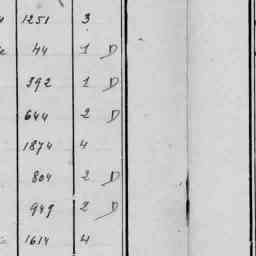 1251 3
44 1 D
392 1 D
644 2 D
1874 4
804 2 D
949 2 D
1614 4